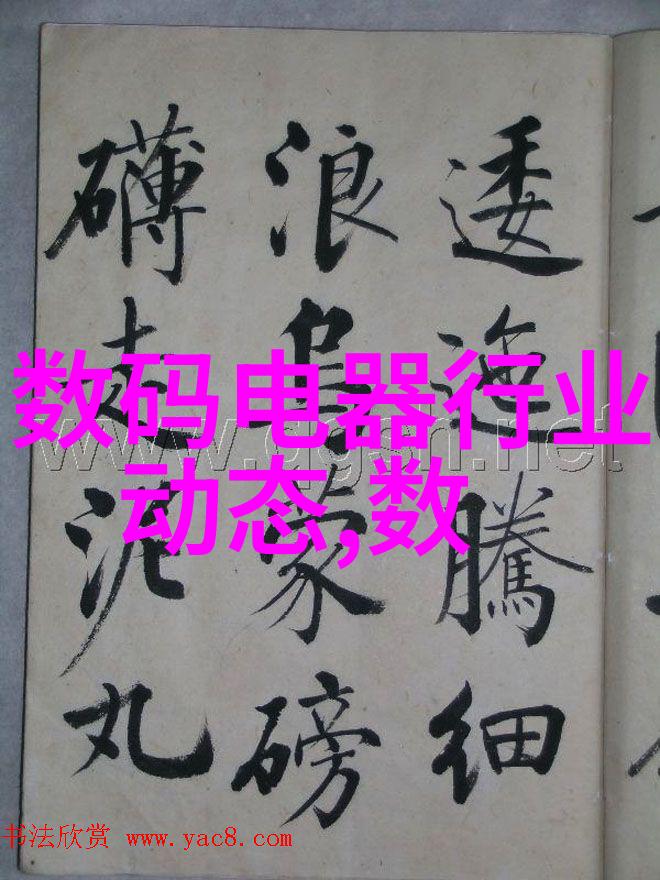 逶迤騰細
浪烏蒙磅
礴走泥丸
数码电器行业
动态,数
书法欣赏 www.yac8.com